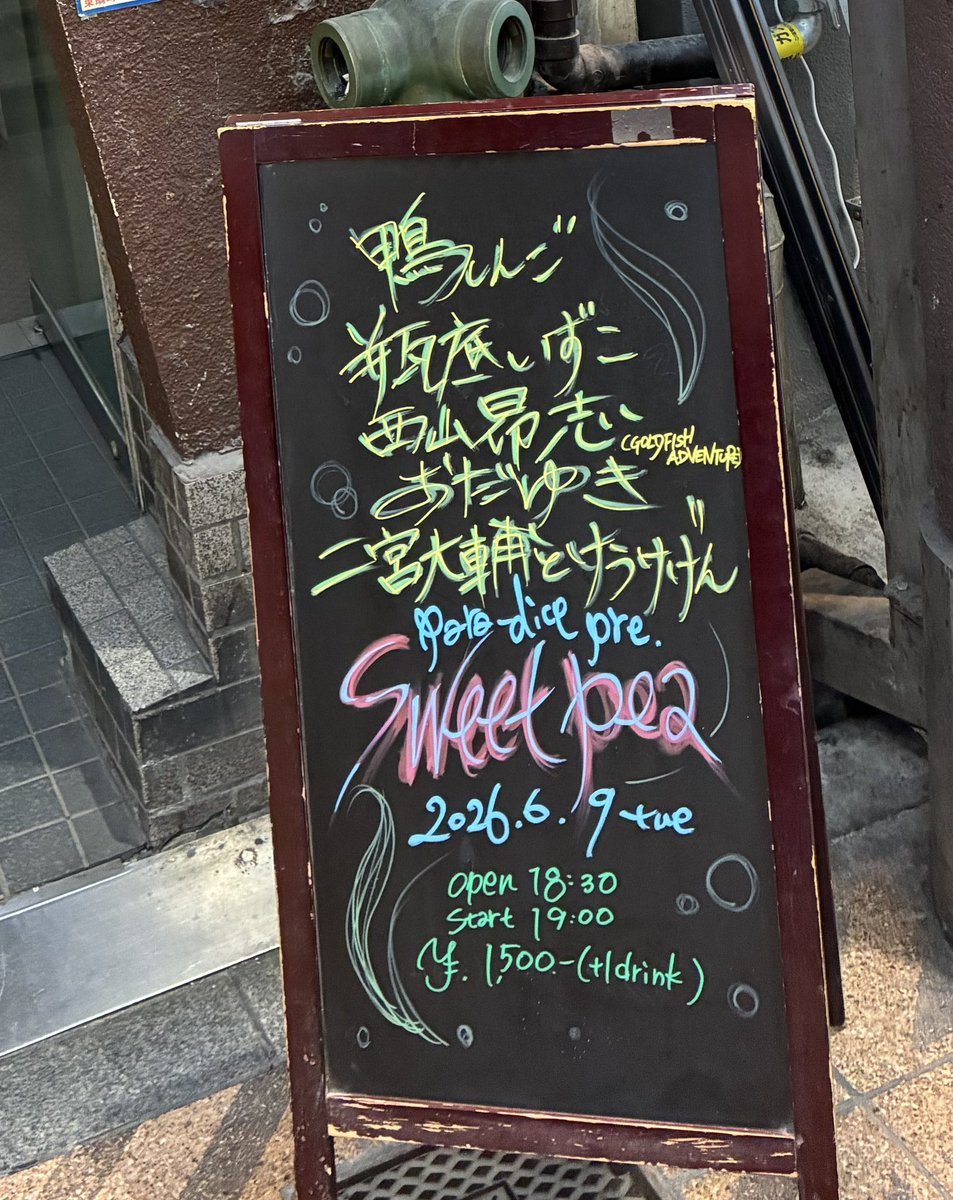 鴨しんご
瓶底しずこ
西山昂志
(GOLDFISH
ADVENTURE)
おだゆき
二宮大輔とけうけげん
para-dice pre.
Sweet pea
2026.6.9 tue
open 18:30
start 19:00
¥.1,500.-(+1drink)